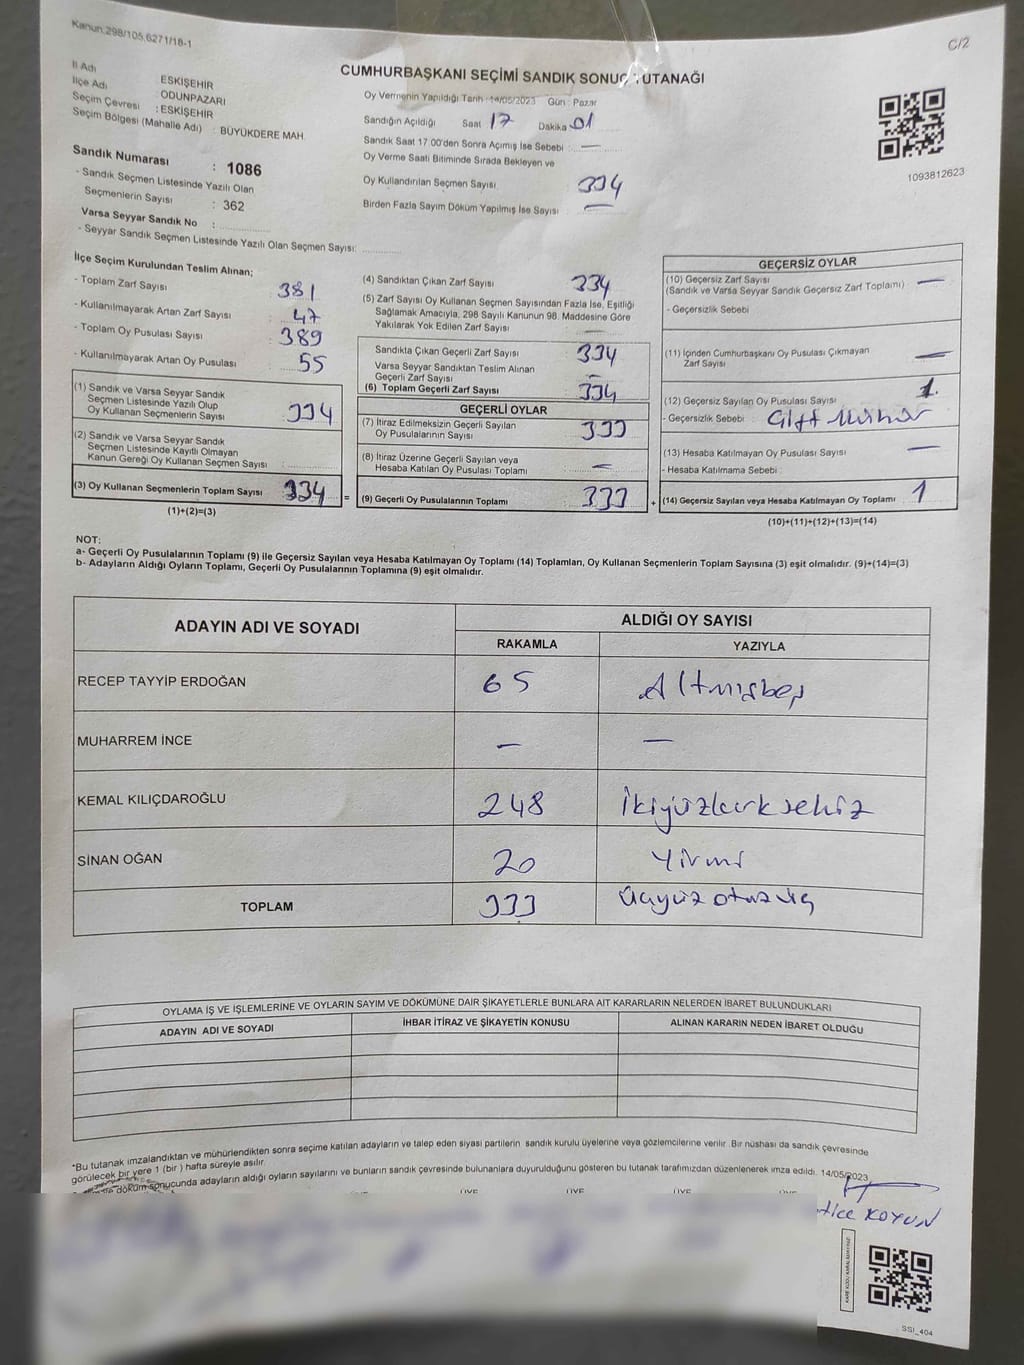 Kanun,298/105,6271/18-1
C/2
CUMHURBAŞKANI SEÇİMİ SANDIK SONUÇ TUTANAĞI
İl Adı ESKİŞEHİR
İlçe Adı ODUNPAZARI
Seçim Çevresi : ESKİŞEHİR
Seçim Bölgesi (Mahalle Adı) : BÜYÜKDERE MAH.
Sandık Numarası : 1086
- Sandık Seçmen Listesinde Yazılı Olan
Seçmenlerin Sayısı : 362
Varsa Seyyar Sandık No :
- Seyyar Sandık Seçmen Listesinde Yazılı Olan Seçmen Sayısı:
Oy Vermenin Yapıldığı Tarih -14/05/2023 Gün : Pazar
Sandığın Açıldığı Saat 17 Dakika 01
Sandık Saat 17.00'den Sonra Açımış İse Sebebi : —
Oy Verme Saati Bitiminde Sırada Bekleyen ve
Oy Kullandırılan Seçmen Sayısı 334
Birden Fazla Sayım Döküm Yapılmış İse Sayısı —
1093812623
İlçe Seçim Kurulundan Teslim Alınan;
- Toplam Zarf Sayısı 381
- Kullanılmayarak Artan Zarf Sayısı : 47
- Toplam Oy Pusulası Sayısı : 389
- Kullanılmayarak Artan Oy Pusulası : 55
(1) Sandık ve Varsa Seyyar Sandık
Seçmen Listesinde Yazılı Olup
Oy Kullanan Seçmenlerin Sayısı : 334
(2) Sandık ve Varsa Seyyar Sandık
Seçmen Listesinde Kayıtlı Olmayan
Kanun Gereği Oy Kullanan Seçmen Sayısı :
(3) Oy Kullanan Seçmenlerin Toplam Sayısı 334 =
(1)+(2)=(3)
(4) Sandıktan Çıkan Zarf Sayısı 334
(5) Zarf Sayısı Oy Kullanan Seçmen Sayısından Fazla İse, Eşitliği
Sağlamak Amacıyla, 298 Sayılı Kanunun 98. Maddesine Göre
Yakılarak Yok Edilen Zarf Sayısı : —
Sandıkta Çıkan Geçerli Zarf Sayısı 334
Varsa Seyyar Sandıktan Teslim Alınan
Geçerli Zarf Sayısı —
(6) Toplam Geçerli Zarf Sayısı 334
GEÇERLİ OYLAR
(7) İtiraz Edilmeksizin Geçerli Sayılan
Oy Pusulalarının Sayısı 333
(8) İtiraz Üzerine Geçerli Sayılan veya
Hesaba Katılan Oy Pusulası Toplamı : —
(9) Geçerli Oy Pusulalarının Toplamı : 333 +
GEÇERSİZ OYLAR
(10) Geçersiz Zarf Sayısı
(Sandık ve Varsa Seyyar Sandık Geçersiz Zarf Toplamı) —
- Geçersizlik Sebebi
(11) İçinden Cumhurbaşkanı Oy Pusulası Çıkmayan
Zarf Sayısı —
(12) Geçersiz Sayılan Oy Pusulası Sayısı 1
- Geçersizlik Sebebi : Çift Mühür
(13) Hesaba Katılmayan Oy Pusulası Sayısı —
- Hesaba Katılmama Sebebi :
(14) Geçersiz Sayılan veya Hesaba Katılmayan Oy Toplamı 1
(10)+(11)+(12)+(13)=(14)
NOT:
a- Geçerli Oy Pusulalarının Toplamı (9) ile Geçersiz Sayılan veya Hesaba Katılmayan Oy Toplamı (14) Toplamları, Oy Kullanan Seçmenlerin Toplam Sayısına (3) eşit olmalıdır. (9)+(14)=(3)
b- Adayların Aldığı Oyların Toplamı, Geçerli Oy Pusulalarının Toplamına (9) eşit olmalıdır.
ADAYIN ADI VE SOYADI
ALDIĞI OY SAYISI
RAKAMLA YAZIYLA
RECEP TAYYİP ERDOĞAN 65 Altmışbeş
MUHARREM İNCE — —
KEMAL KILIÇDAROĞLU 248 İkiyüzkırksekiz
SİNAN OĞAN 20 Yirmi
TOPLAM 333 Üçyüz otuz üç
OYLAMA İŞ VE İŞLEMLERİNE VE OYLARIN SAYIM VE DÖKÜMÜNE DAİR ŞİKAYETLERLE BUNLARA AİT KARARLARIN NELERDEN İBARET BULUNDUKLARI
ADAYIN ADI VE SOYADI İHBAR İTİRAZ VE ŞİKAYETİN KONUSU ALINAN KARARIN NEDEN İBARET OLDUĞU
*Bu tutanak imzalandıktan ve mühürlendikten sonra seçime katılan adayların ve talep eden siyasi partilerin sandık kurulu üyelerine veya gözlemcilerine verilir .Bir nüshası da sandık çevresinde
görülecek bir yere 1 (bir) hafta süreyle asılır.
döküm sonucunda adayların aldığı oyların sayılarını ve bunların sandık çevresinde bulunanlara duyurulduğunu gösteren bu tutanak tarafımızdan düzenlenerek imza edildi. 14/05/2023
ÜYE ÜYE ÜYE ÜYE
KOYUN
KARE KODU KARALAMAYINIZ!
SSI_404